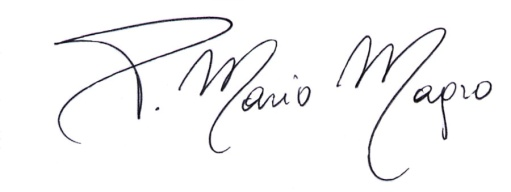 P. Mario Magro